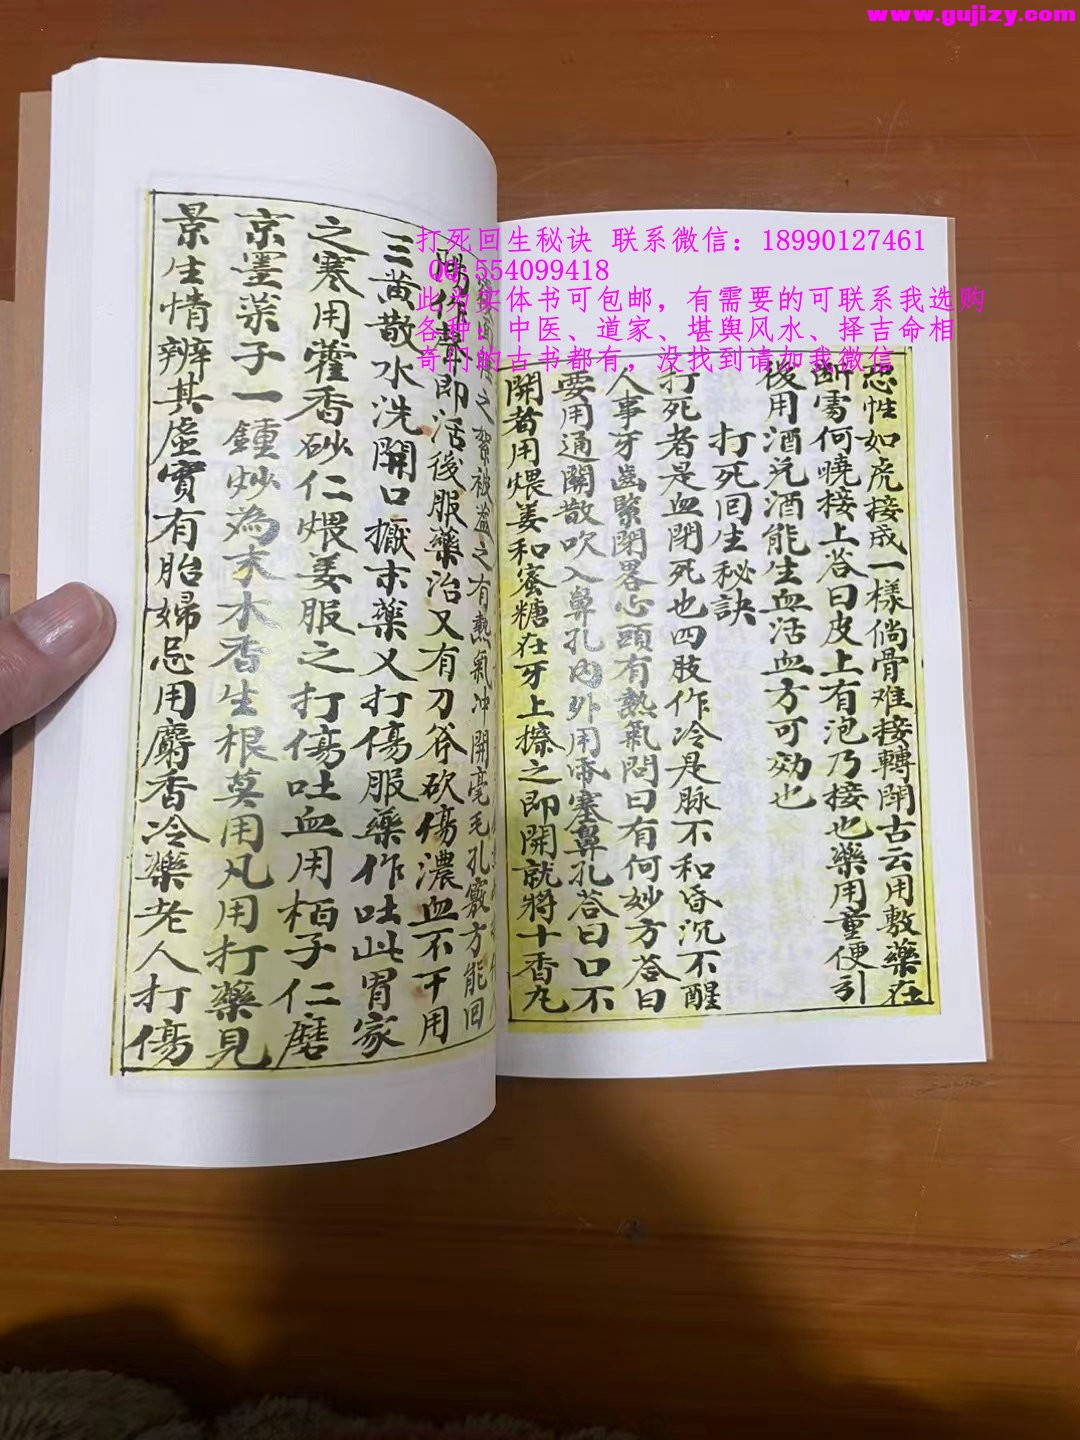 www.gujizy.com
打死回生秘诀 联系微信：18990127461
QQ 554099418
此为实体书可包邮，有需要的可联系我选购
各种：中医、道家、堪舆风水、择吉命相
奇门的古书都有，没找到请加我微信
惡性如虎接成一樣倘骨难接轉鬦古云用敷藥在
斷處何曉接上荅曰皮上有泡乃接也藥用童便引
後用酒兌酒能生血活血方可効也
打死回生秘訣
打死者是血閉死也四肢作冷是脉不和昏沉不醒
人事牙齒緊閉畧心頭有熱氣問曰有何妙方荅曰
要用通關散吹入鼻孔內外用 塞鼻孔荅曰口不
開者用煨姜和蜜糖在牙上擦之即開就將十香丸
之 被盖之有熱氣冲開毫毛孔竅方能回
即活後服藥治又有刀斧砍傷濃血不干用
三黄散水洗開口摋末藥又打傷服藥作吐此胃家
之寒用藿香砂仁煨姜服之打傷吐血用栢子仁磨
京墨菜子一鍾炒為末水香生根莫用凡用打藥見
景生情辨其虛實有胎婦忌用麝香冷藥老人打傷